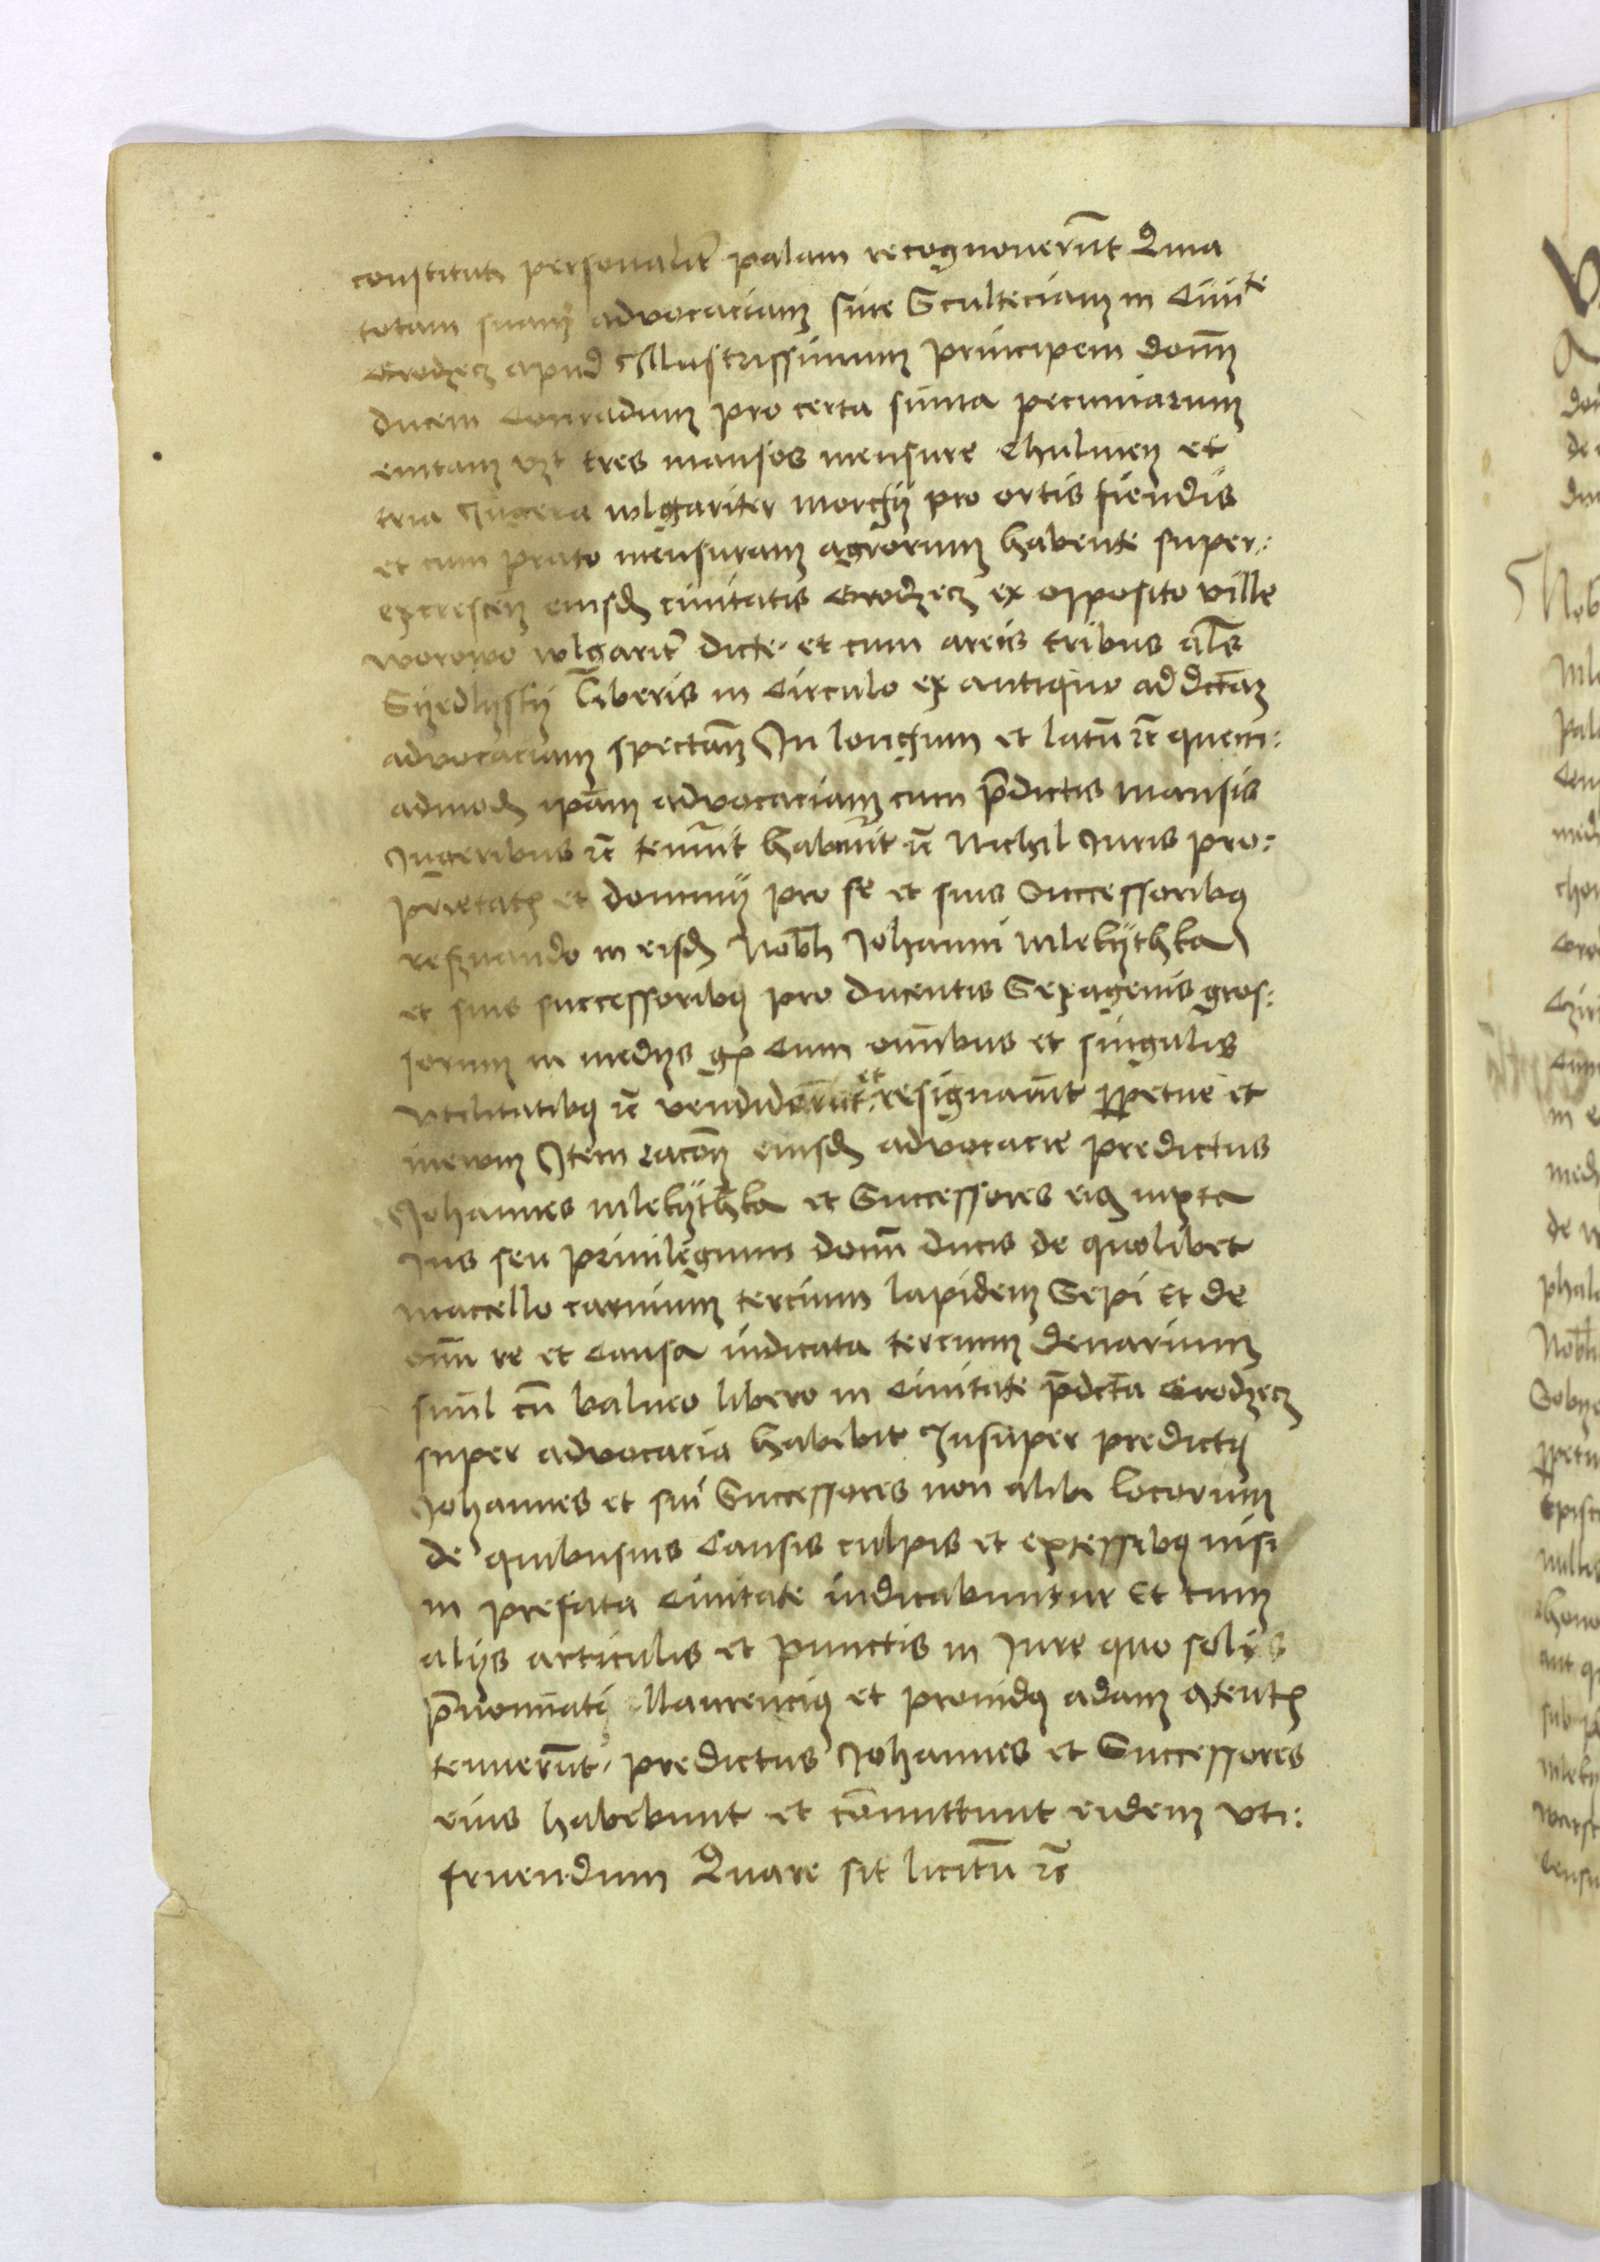 constituti personaliter palam recognoverunt Quia
totam suam advocaciam sive Sculteciam in Civite
Grodzecz apud Illustrissimum principem domm
ducem Conradum pro certa summa pecuniarum
emtam vzt tres mansos mensure Chulmen et
tria Jugera wlgariter morghy pro ortis fiendis
et cum prato mensuram agrorum habente super:
excrescen eiusd civitatis Grodzecz ex opposito ville
worowo wlgarit dicte et cum areis tribus als
Syedlysky liberis in Circulo ex antiquo ad dctam
advocaciam spectan In longum et latum etc quem:
admod ipam advocaciam cum pdictis mansis
Jugeribus etc tenuit habuit etc Nichil Juris pro:
prietatis et dominij pro se et suis Successoribus
reservando in eisd Nobli Johanni Mlekythka
et suis successoribus pro ducentis Sexagenis gros:
sorum in medys gr Cum omibus et singulis
vtilitatibus etc vendiderunt et resignarunt ppetue et
inewm Item racone eiusd advocacie predictus
Johannes Mlekythka et Successores eius iuxta
Jus seu privilegium domi ducis de quolibet
maccello carnium tercium lapidem Sepi Et de
omi re et Causa iudicata tercium denarium
simul cum balneo libero in Civitate pdcta Grodzecz
super advocacia habebit Insuper predictus
Johannes et sui Successores non alibi locorum
de quibusvis Causis culpis et excessibus nisi
in prefata Civitate iudicabuntur Et cum
alijs articulis et punctis in Jure quo solis
pnominatus Laurencius et providus adam
tenuerunt predictus Johannes et Successores
eius habebunt et committunt eidem vti:
fruendum Quare sit licitum etc